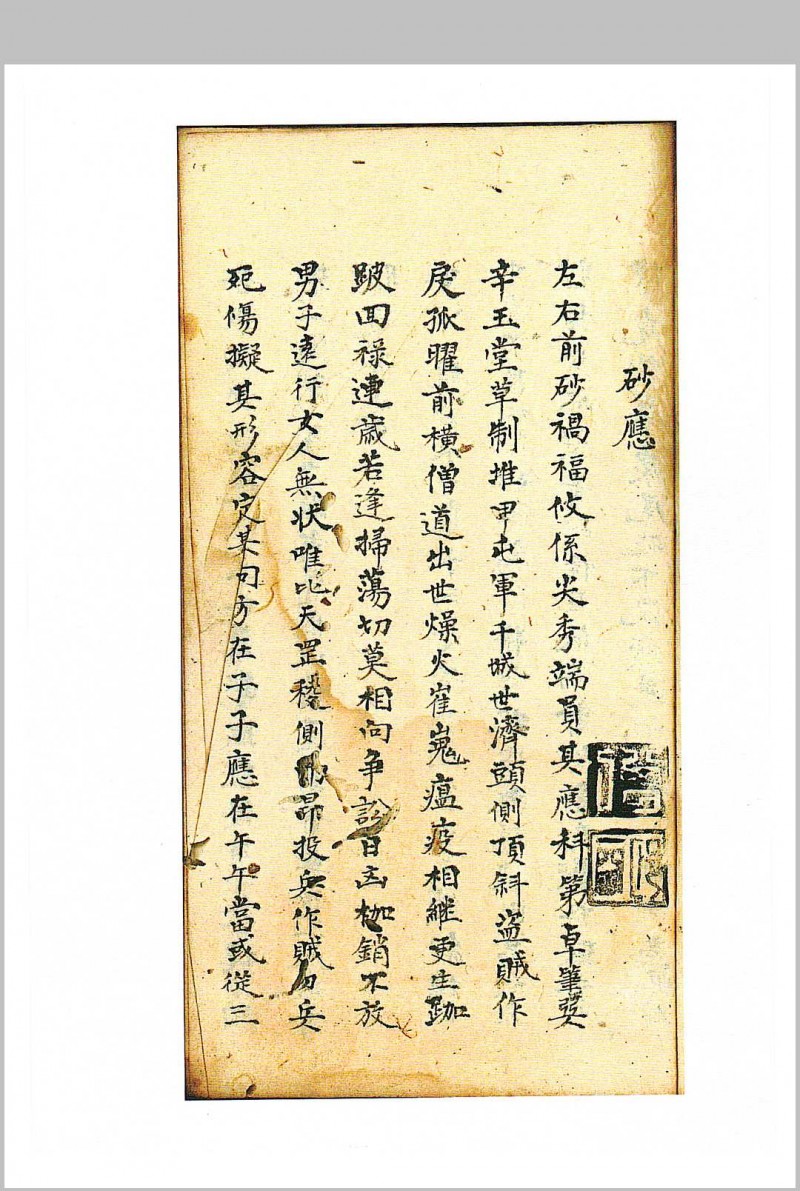 砂應
左右前砂禍福攸係尖秀端員其應科第卓筆
辛玉堂草制堆甲屯軍千城世濟頭側頂斜盜賊作
戾孤曜前橫僧道出世燥火崔嵬瘟疫相継更生跏
跛回禄連歲若逢掃蕩切莫相向争訟日凶枷銷不放
男子遠行女人無状唯此天罡稜側昂投兵作賊兵
死傷擬其形容定某向方在子子應在午午當或從三